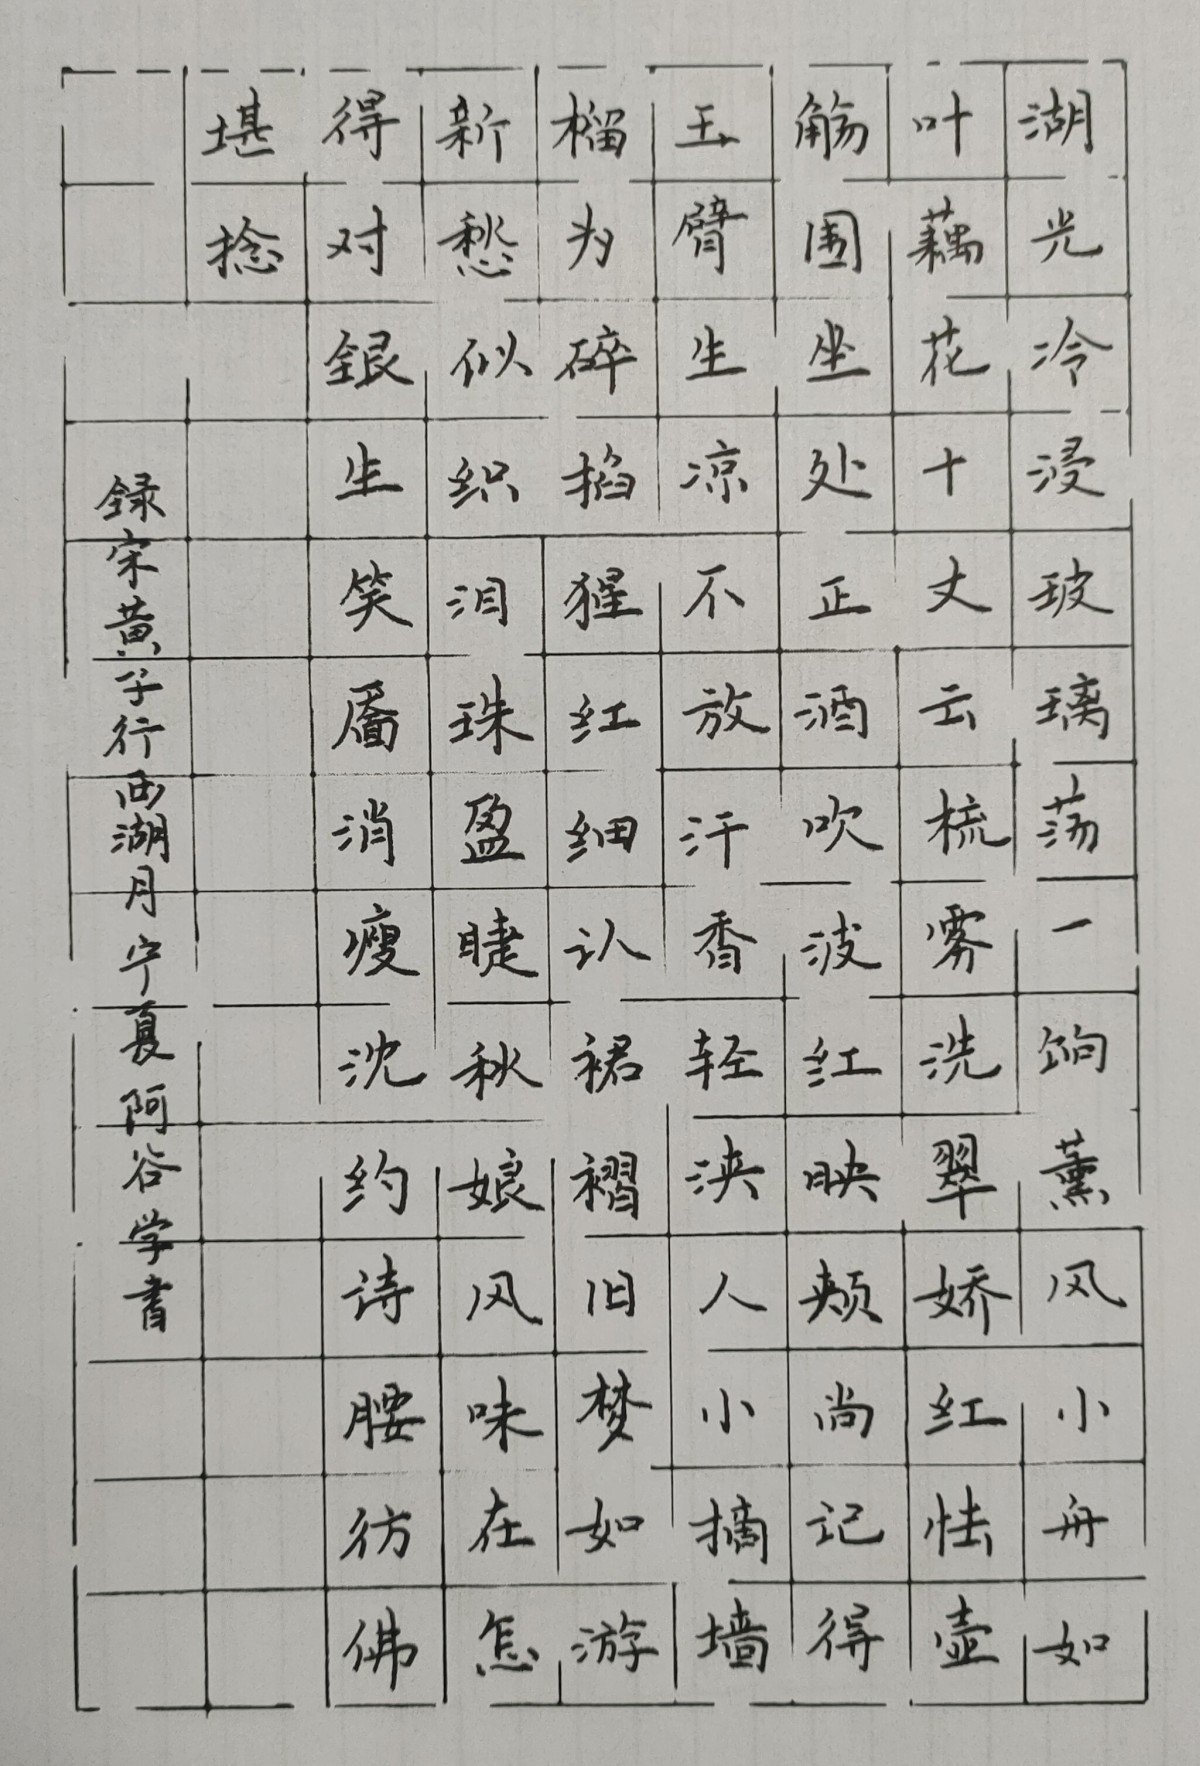 湖光冷浸玻璃荡一饷薰风小舟如
叶藕花十丈云梳雾洗翠娇红怯壶
觞围坐处正酒吹波红映颊尚记得
玉臂生凉不放汗香轻浃人小摘墙
榴为碎掐猩红细认裙褶旧梦如游
新愁似织泪珠盈睫秋娘风味在怎
得对银生笑靥消瘦沈约诗腰彷佛
堪捻
録宋黄子行西湖月宁夏阿谷学书